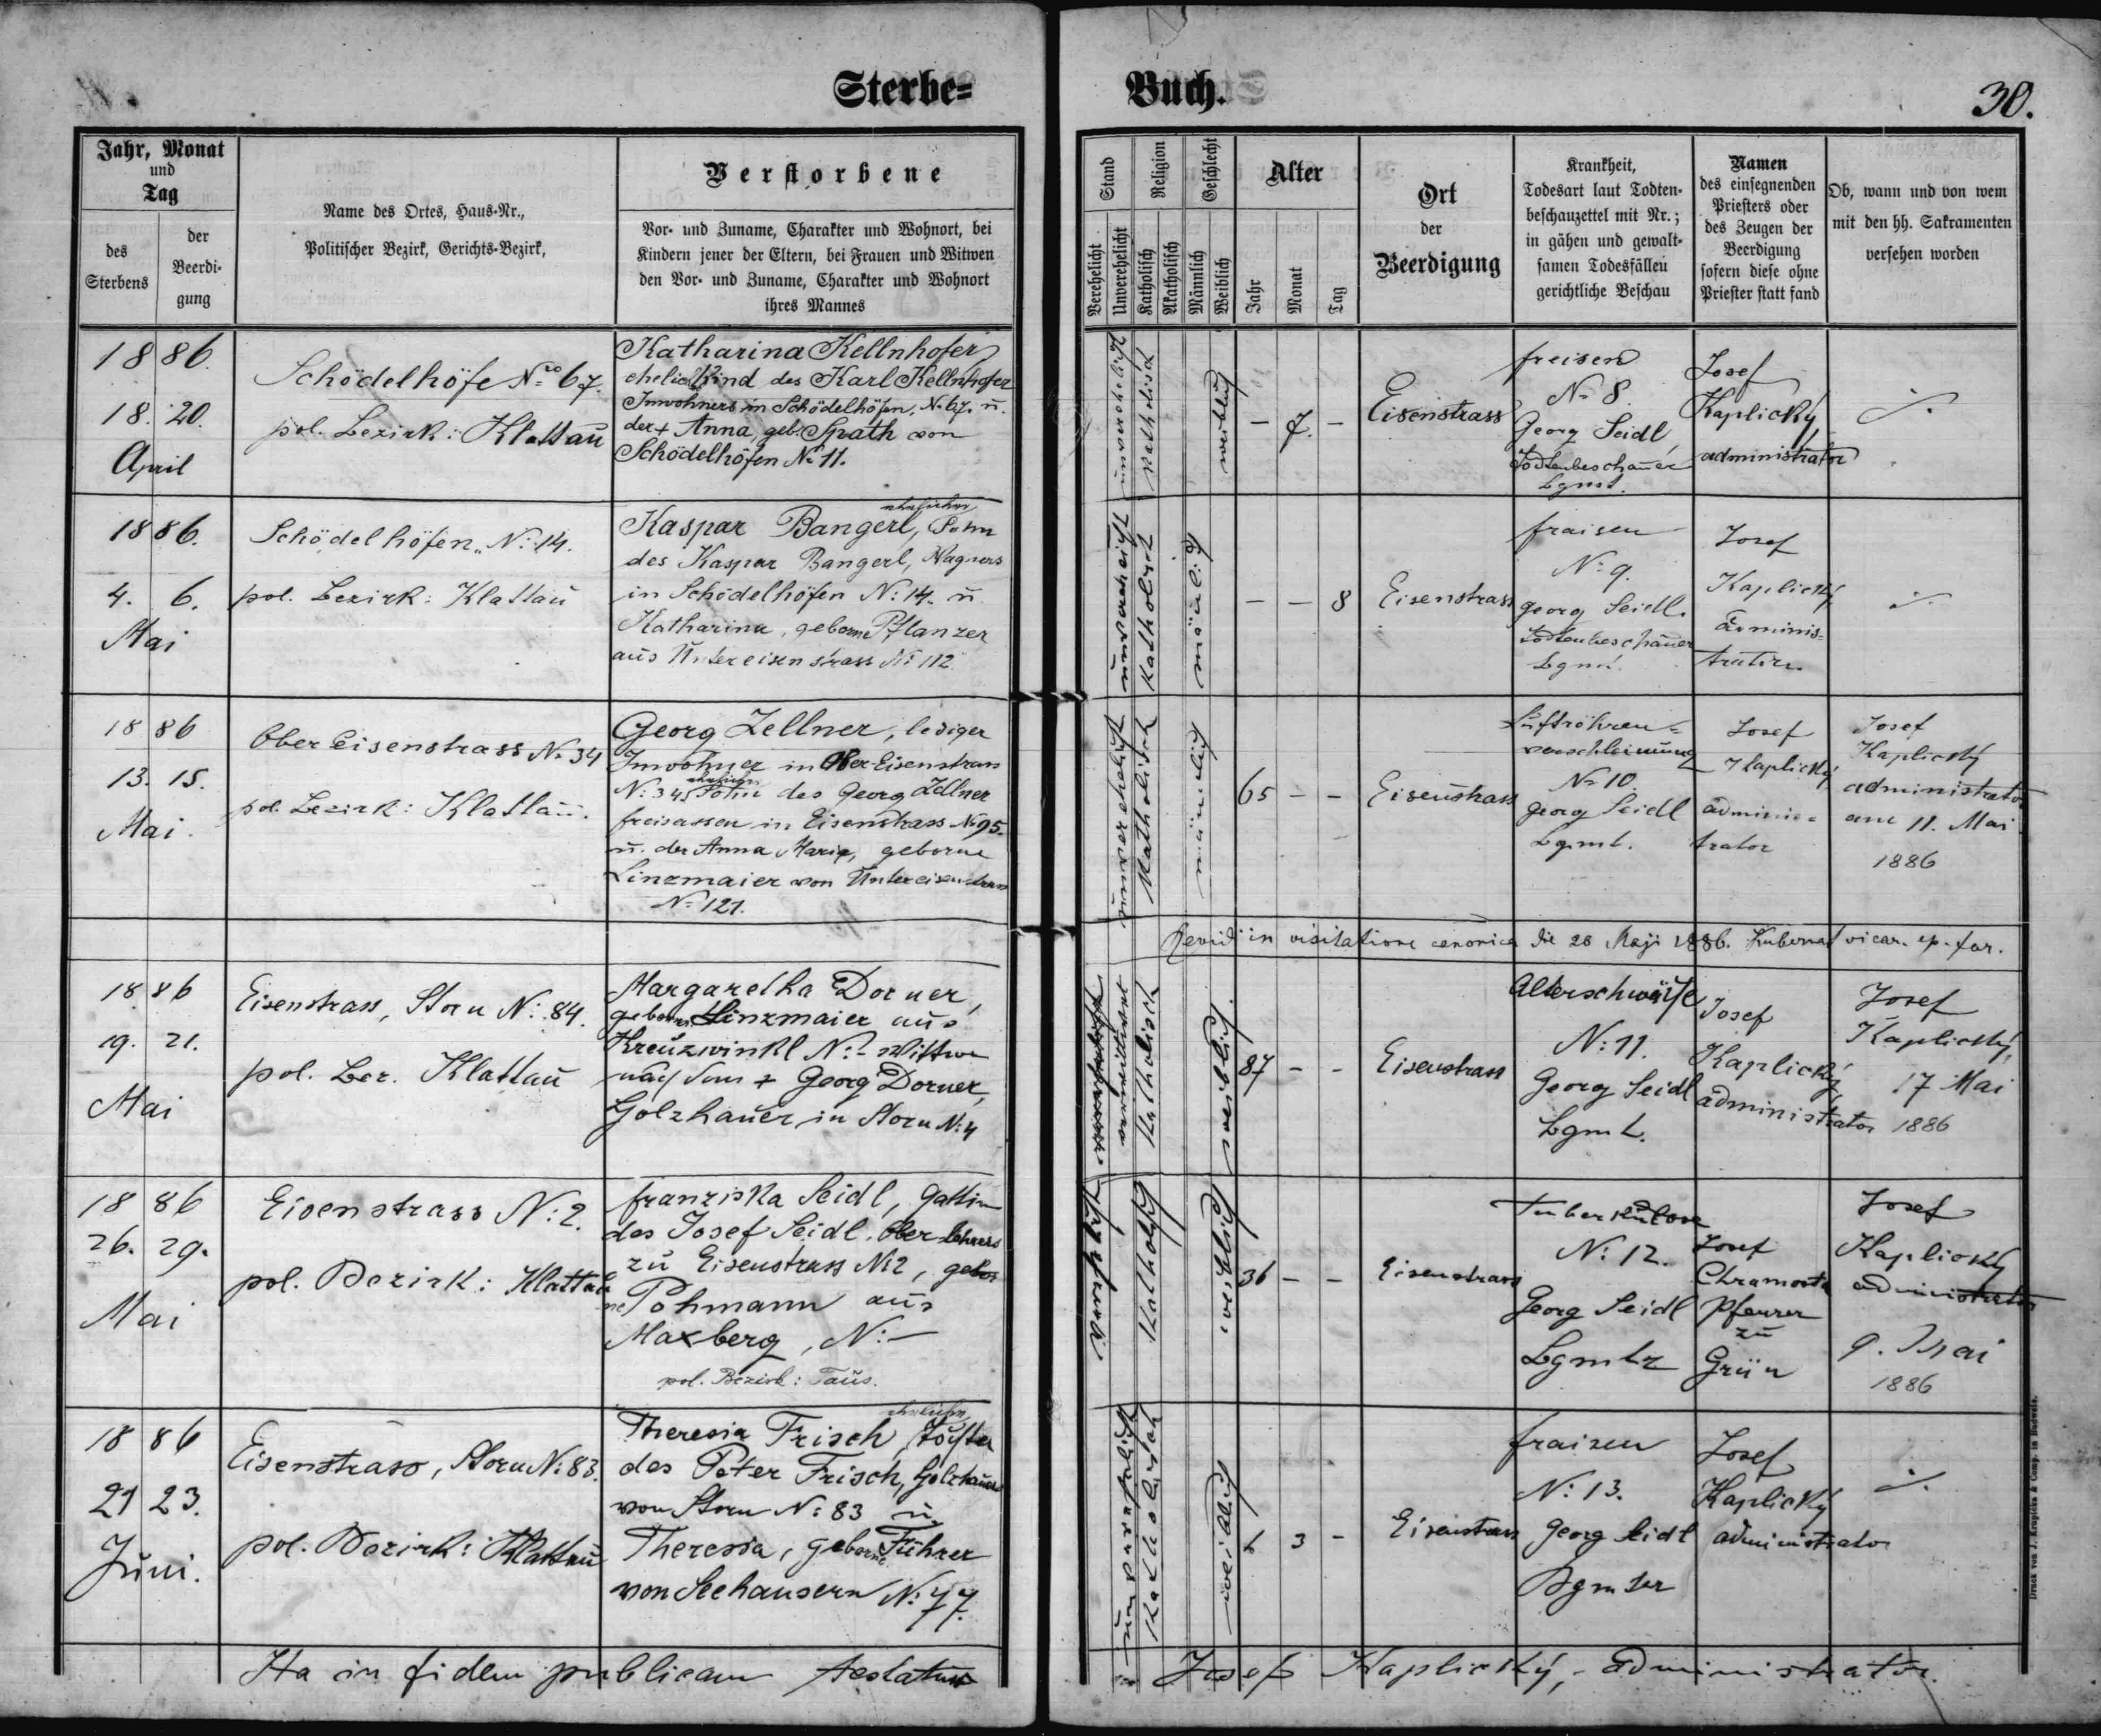 Sterbe=
Buch.
30.
Jahr, Monat
und
Tag
des
Sterbens
der
Beerdi-
gung
Name des Ortes, Haus-Nr.,
Politischer Bezirk, Gerichts-Bezirk,
Verstorbene
Vor- und Zuname, Charakter und Wohnort, bei
Kindern jener der Eltern, bei Frauen und Witwen
den Vor- und Zuname, Charakter und Wohnort
ihres Mannes
Stand
Verehelicht
Unverehelicht
Religion
Katholisch
Akatholisch
Geschlecht
Männlich
Weiblich
Alter
Jahr
Monat
Tag
Ort
der
Beerdigung
Krankheit,
Todesart laut Todten-
beschauzettel mit Nr.;
in gähen und gewalt-
samen Todesfällen
gerichtliche Beschau
Namen
des einsegnenden
Priesters oder
des Zeugen der
Beerdigung
sofern diese ohne
Priester statt fand
Ob, wann und von wem
mit den hh. Sakramenten
versehen worden
1886.
18. 20.
April
Schödelhöfe No 67.
pol. Bezirk: Klattau
Katharina Kellnhofer
ehelich Kind des Karl Kellnhofer
Inwohners in Schödelhöfen, N. 67. u.
der + Anna, geb. Spath von
Schödelhöfen No 11.
unverehelicht
katholisch
weiblich
- 7. -
Eisenstrass
freisen
No 8.
Georg Seidl,
Todtenbeschauer
Josef
Kaplický
administrator
./.
1886.
4. 6.
Mai
Schödelhöfen, N: 14.
pol. Bezirk: Klattau
Kaspar Bangerl, ehelicher Sohn
des Kaspar Bangerl, Wagners
in Schödelhöfen N: 14. u
Katharina, geborne Pflanzer
aus Untereisenstrass No 112.
unverehelicht
Katholisch
männlich
- - 8
Eisenstrass
fraisen
No 9.
Georg Seidl.
Todtenbeschauer
Josef
Kaplický
adminis=
trator
./.
1886
13. 15.
Mai.
Ober Eisenstrass No 34
pol. Bezirk: Klattau.
Georg Zellner, lediger
Inwohner in Ober-Eisenstrass
N: 34, ehelicher Sohn des Georg Zellner
freisassen in Eisenstrass No 95.
u. der Anna Maria, geborne
Linzmaier von Untereisenstrass
No 121.
unverehelicht
Katholisch
männlich
65 - -
Eisenstrass
Luftröhren=
verschleimung
No 10.
Georg Seidl
Josef
Kaplický
adminis=
trator
Josef
Kaplický
administrator
am 11. Mai
1886
in visitatione canonica die 28 Maji 1886. vicar. ep. for.
1886
19. 21.
Mai
Eisenstrass, Storn N: 84.
pol. Bez. Klattau
Margaretha Dorner,
geborne Linzmaier aus
Kreuzwinkl N:- Wittwe
nach dem + Georg Dorner,
Holzhauer in Storn N: 4
verwittwet
Katholisch
weiblich.
87 - -
Eisenstrass
Altersschwäche
N: 11.
Georg Seidl
Josef
Kaplický
administrator
Josef
Kaplický,
17 Mai
1886
1886
26. 29.
Mai
Eisenstrass N: 2.
pol. Bezirk: Klattau
Franziska Seidl, Gattin
des Josef Seidl, Oberlehrers
zu Eisenstrass N: 2, gebor
ne Pohmann aus
Maxberg, N:-
pol. Bezirk: Taus.
verehelicht
Katholisch
weiblich
36 - -
Eisenstrass
Tuberkulose
N: 12.
Georg Seidl
Josef
Chramosta
Pfarrer
zu
Grün
Josef
Kaplický
administrator
9. Mai
1886
1886
21 23.
Juni.
Eisenstrass, Storn N: 83.
pol. Bezirk: Klattau
Theresia Frisch, eheliche Tochter
des Peter Frisch, Holzhauers
von Storn N: 83 u.
Theresia, geborne Führer
von Seehausern N: 77.
unverehelicht
Katholisch
weiblich
1 3 -
Eisenstrass
fraisen
N: 13.
Georg Seidl
Josef
Kaplický
administrator
./.
Ita in fidem publicam testatur
Josef Kaplický, administrator.
Druck von J. Krupička & Comp. in Budweis.